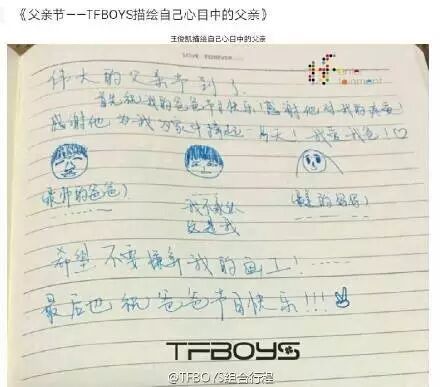 《父亲节——TFBOYS描绘自己心目中的父亲》
王俊凯描绘自己心目中的父亲
LOVE FOREVER
伟大的父亲节到了,
首先祝我的爸爸节日快乐!感谢他对我的疼爱!
感谢他为我为家中撑起一片天!我爱我爸!♡
(最帅的爸爸)
我不承认
这是我
(最美的妈妈)
希望不要嫌弃我的画工!......
最后也祝爸爸节日快乐!!!
TFBOYS
@TFBOYS组合行程